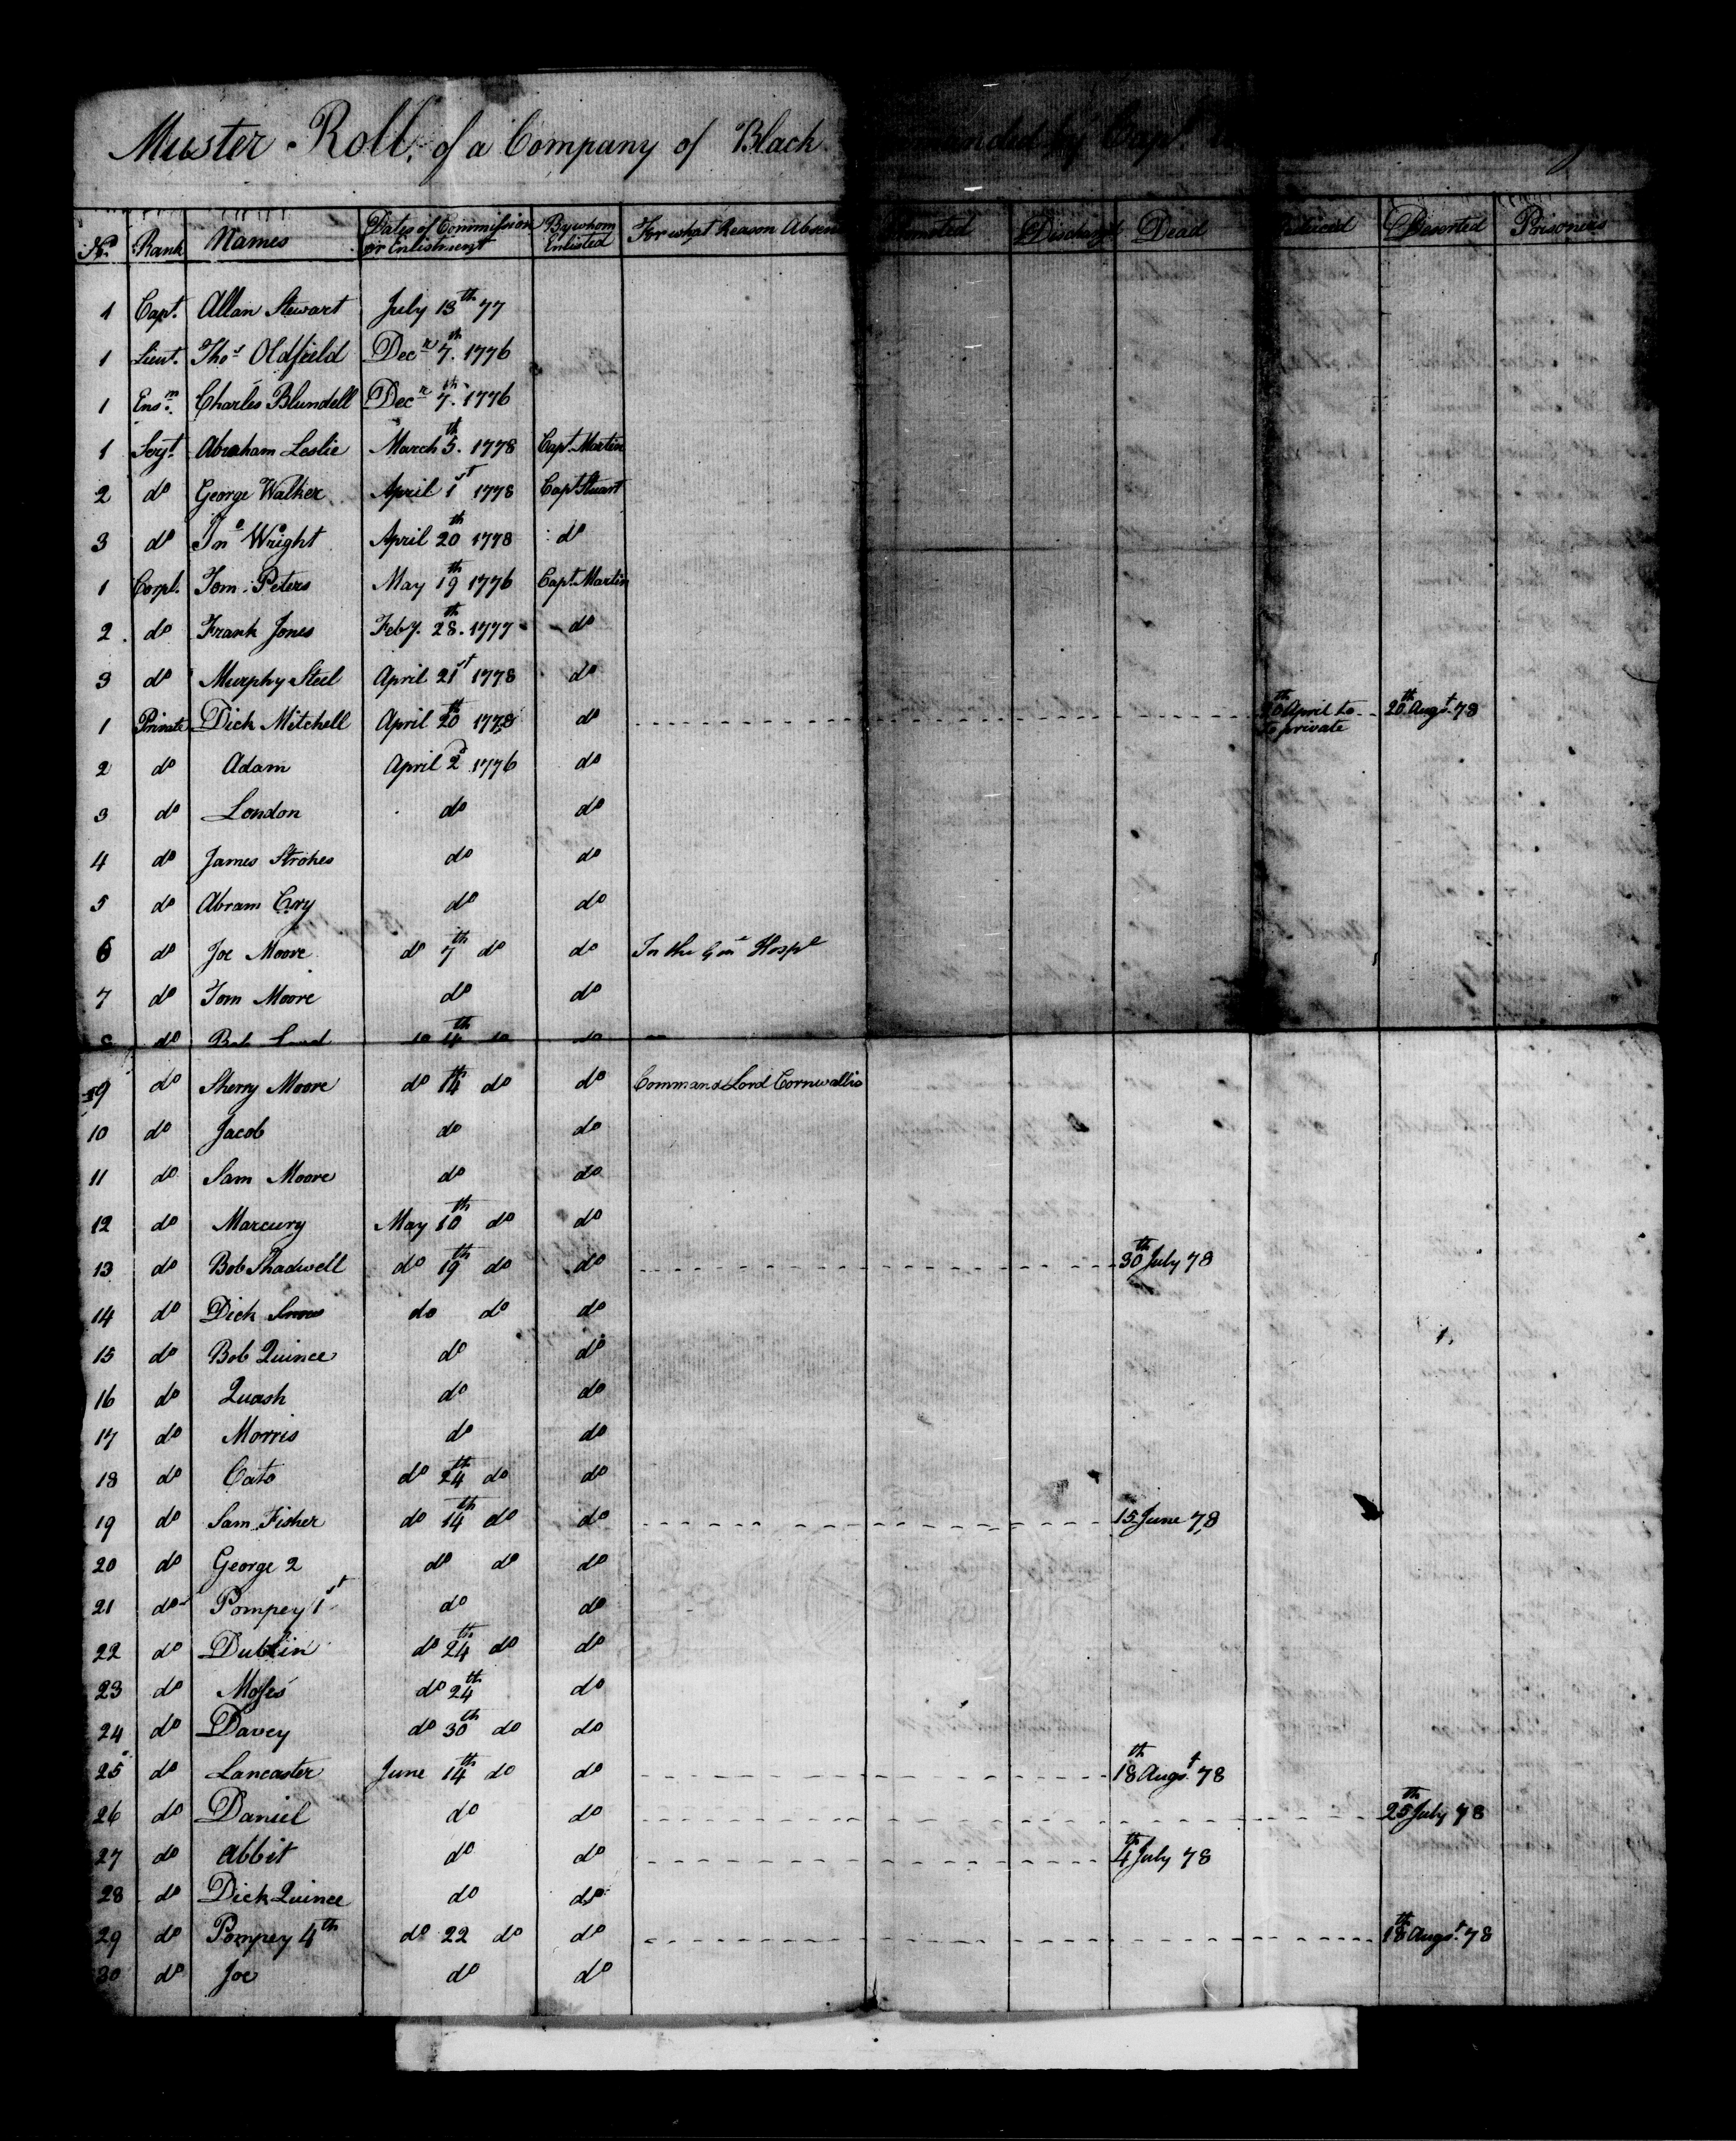 Muster Roll, of a Company of Black commanded by Capt.
No. Rank Names Dates of Commission or Enlistment By whom Enlisted For what Reason Absent Promoted Discharg'd Dead Reduced Deserted Prisoners
1 Capt. Allan Stewart July 13th 77
1 Lieut. Thos Oldfield Decr 7th. 1776
1 Ensn. Charles Blundell Decr 7th. 1776
1 Sergt. Abraham Leslie March 5th. 1778 Capt. Martin
2 do George Walker April 1st 1778 Capt. Stuart
3 do Jno Wright April 20th 1778 do
1 Corpl. Tom Peters May 19th 1776 Capt. Martin
2 do Frank Jones Feby. 28th. 1777 do
3 do Murphy Steel April 21st 1778 do
1 Private Dick Mitchell April 20th 1778 do 20th April to to private 20th Augst. 78
2 do Adam April 2d 1776 do
3 do London do do
4 do James Strokes do do
5 do Abram Cry do do
6 do Joe Moore do 7th do do In the Genl Hospl
7 do Tom Moore do do
8 do Bob do
9 do Sherry Moore do 14th do do Command Lord Cornwallis
10 do Jacob do do
11 do Sam Moore do do
12 do Marcury May 10th do do
13 do Bob Shadwell do 19th do do 30th July 78
14 do Dick Snow do do do
15 do Bob Quince do do
16 do Quash do do
17 do Morris do do
18 do Cato do 24th do do
19 do Sam Fisher do 14th do do 15 June 78
20 do George 2 do do do
21 do Pompey 1st do do
22 do Dublin do 24th do do
23 do Moses do 24th do
24 do Davey do 30th do do
25 do Lancaster June 14th do do 18th Augst. 78
26 do Daniel do do 25th July 78
27 do Abbit do do 4th July 78
28 do Dick Quince do do
29 do Pompey 4th do 22 do do 18th Augst. 78
30 do Joe do do